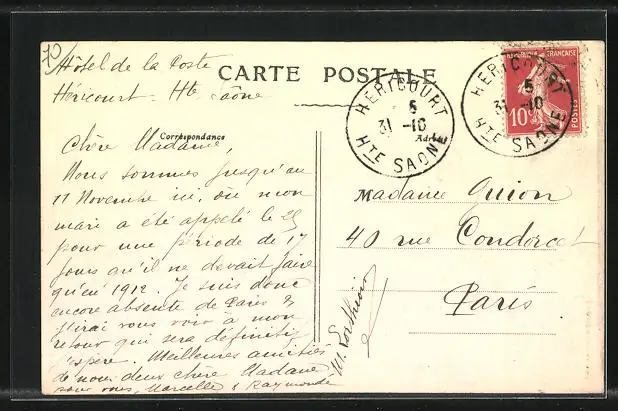 70
Hôtel de la Poste
Héricourt - Hte Saône
CARTE POSTALE
Correspondance
Chère Madame,
Nous sommes jusqu'au
11 Novembre ici, où mon
mari a été appelé le 25
pour une période de 17
jours qu'il ne devait faire
qu'en 1912. Je suis donc
encore absente de Paris &
j'irai vous voir à mon
retour qui sera définitif
j'espère. Meilleures amitiés
de nous deux chère Madame
pour vous, Marcelle & Raymonde
HERICOURT
5
31 -10
HTE SAONE
HERICOURT
5
31 -10
HTE SAONE
RÉPUBLIQUE FRANÇAISE
10c
POSTES
Madame Guion
40 rue Condorcet
Paris